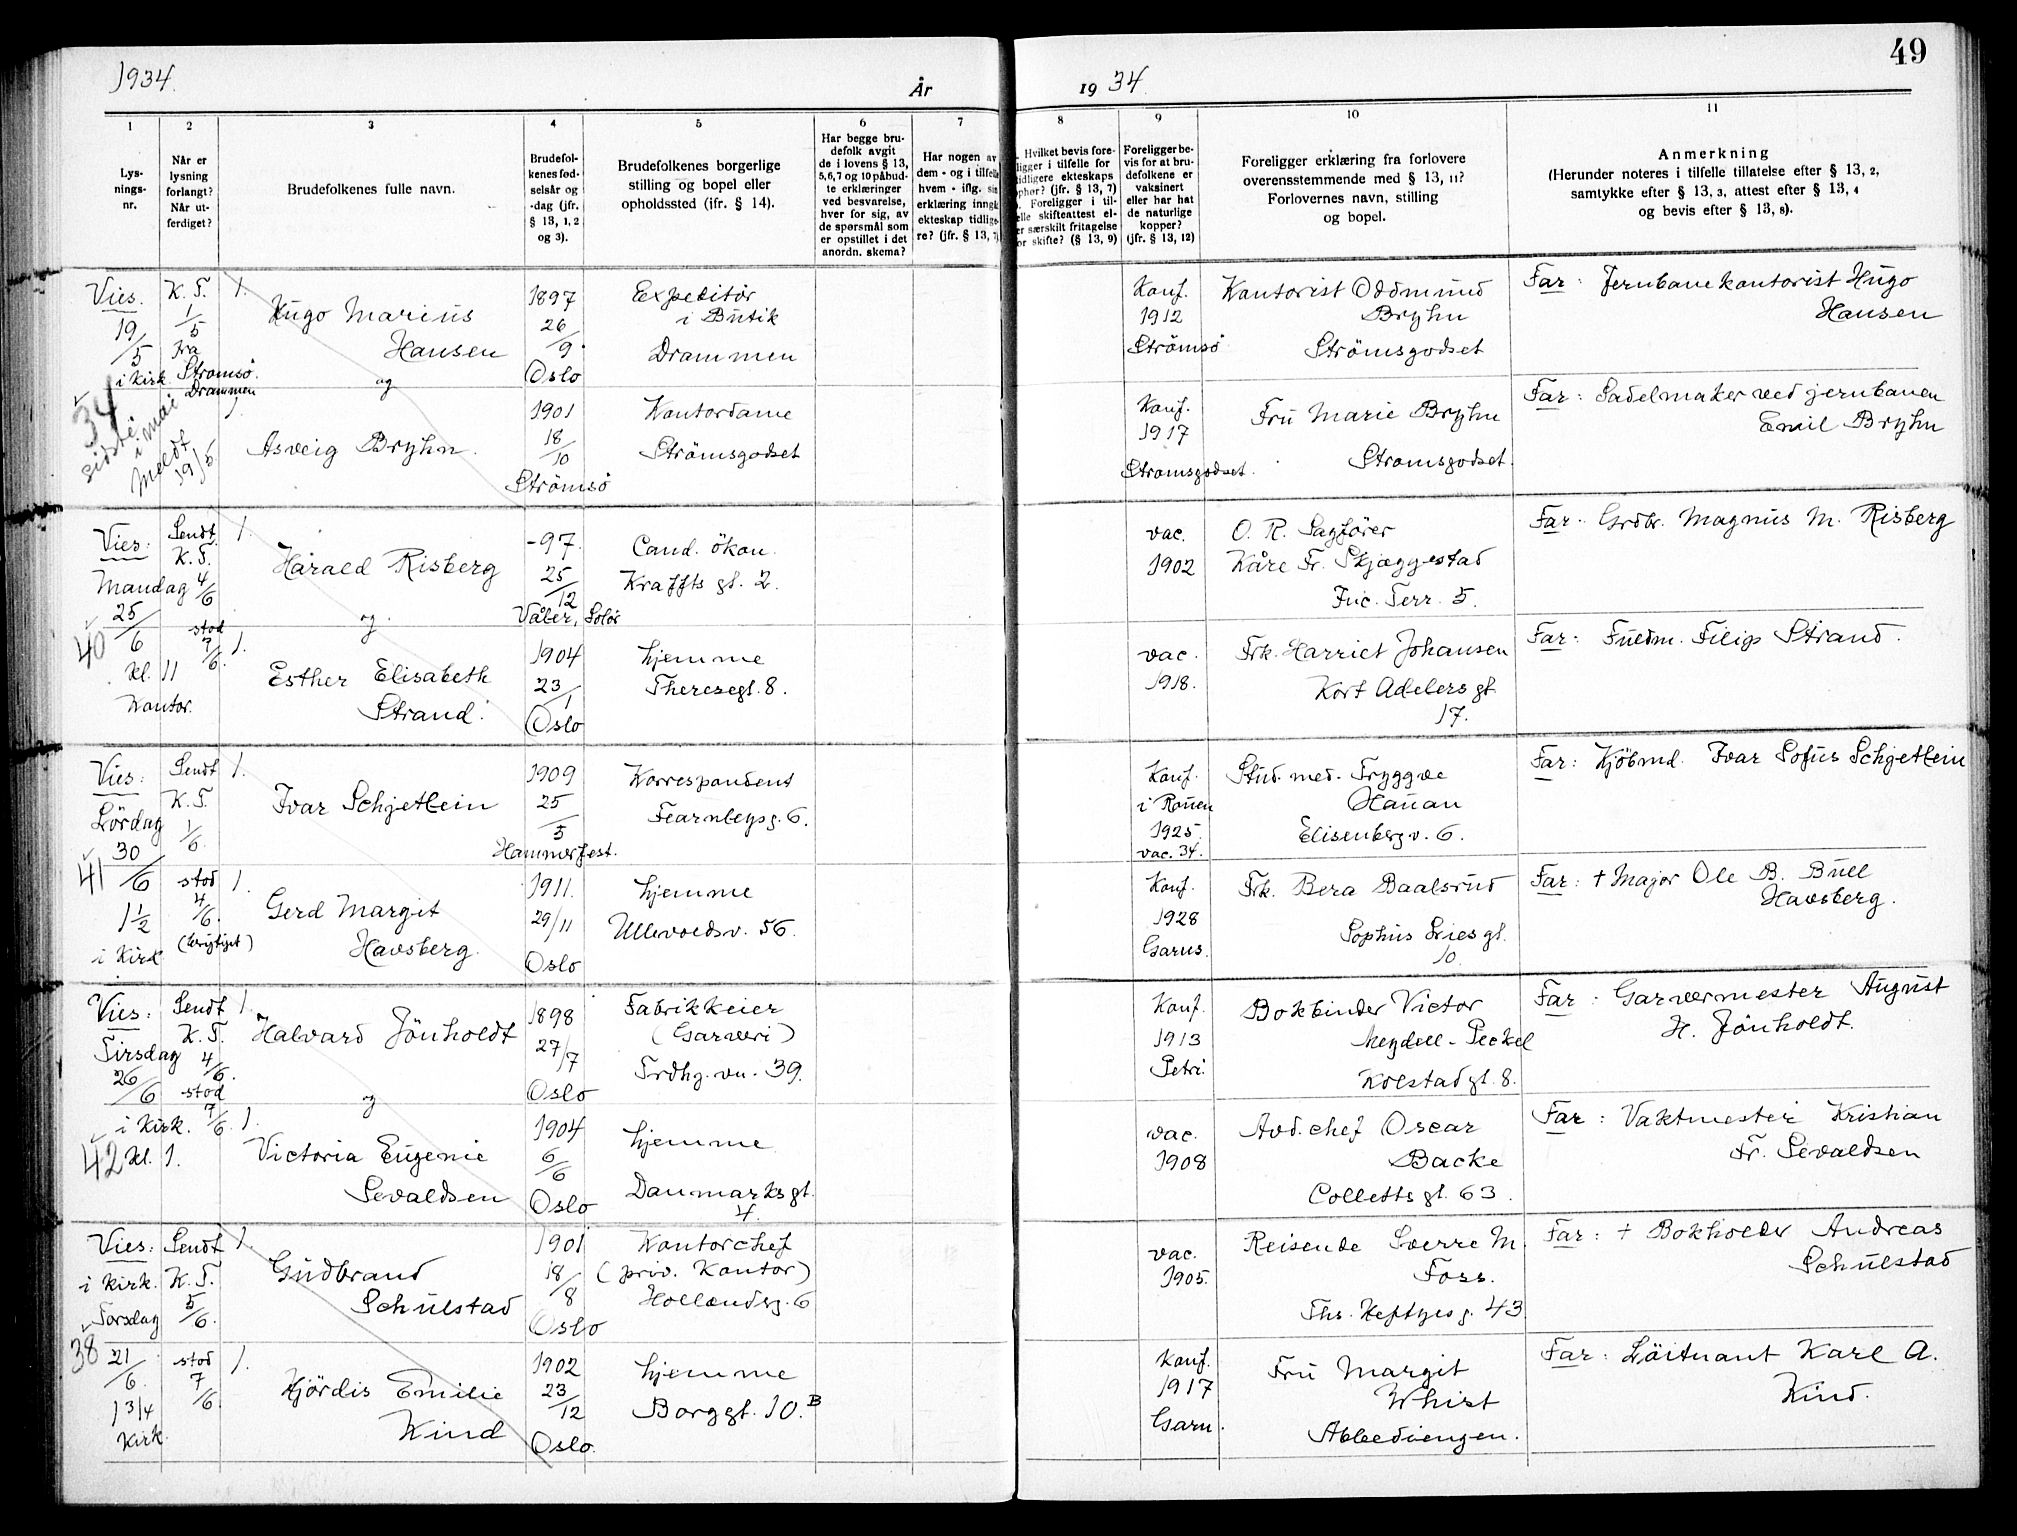 1934.
År
19 34.
49
1
2
3
4
5
6
7
8
9
10
11
Lys-
nings-
nr.
Når er
lysning
forlangt?
Når ut-
ferdiget?
Brudefolkenes fulle navn.
Brudefol-
kenes fød-
selsår og
-dag (jfr.
§ 13, 1, 2
og 3).
Brudefolkenes borgerlige
stilling og bopel eller
opholdssted (ifr. § 14).
Har begge bru-
defolk avgit
de i lovens § 13,
5,6,7 og 10 påbud-
te erklæringer
ved besvarelse,
hver for sig, av
de spørsmål som
er opstillet i det
anordn. skema?
Har nogen av
dem - og i tilfelle
hvem - iflg. sin
erklæring inngk
ekteskap tidlige-
re? (jfr. § 13, 7)
Hvilket bevis fore-
ligger i tilfelle for
tidligere ekteskaps
ophør? (jfr. § 13, 7)
Foreligger i til-
elle skifteattest el-
er særskilt fritagelse
or skifte? (§ 13, 9)
Foreligger be-
vis for at bru-
defolkene er
vaksinert
eller har hat
de naturlige
kopper?
(jfr. § 13, 12)
Foreligger erklæring fra forlovere
overensstemmende med § 13, 11?
Forlovernes navn, stilling
og bopel.
Anmerkning
(Herunder noteres i tilfelle tillatelse efter § 13, 2,
samtykke efter § 13, 3, attest efter § 13, 4
og bevis efter § 13, 8).
Vies.
19/5
i Kirk
34
sidste
i mai
Meldt
19/5
K. T.
1/5
Fra
Strømsø.
Drammen
1.
Hugo Marius
Hansen
og
1.
Asveig Bryhn.
1897
26/9
Oslo
1901
18/10
Strömsö
Expeditör
i Butik
Drammen
Kontordame
Strömsgodset
Konf.
1912
Strömsö
Konf.
1917
Strømsgodset.
Kontorist Oddmund
Bryhn
Strömsgodset
Fru Marie Bryhn
Strømsgodset.
Far: Jernbanekontorist Hugo
Hansen
Far: Sadelmaker ved jernbanen
Emil Bryhn
Vies:
Mandag
25/6
40
kl. 11
Kontor.
Sendt
K. T.
4/6
stod
7/6.
1.
Harald Risberg
og.
1.
Esther Elisabeth
Strand.
-97.
25/12
Våler, Solør
1904
23/1
Oslo
Cand. ökon.
Kraffts gt. 2.
hjemme
Theresegt. 8.
vac.
1902
vac.
1918.
O. R. Sagförer
Kåre Fr. Skjæggestad
Inc. Terr. 5.
Frk. Harriet Johansen
Kort Adelers gt.
17.
Far. Grdbr. Magnus M. Risberg
Far: Fuldm. Filip Strand.
Vies:
Lördag
30/6
41
1½
i Kirk
Sendt
K. T.
1/6.
stod
4/6.
1.
Ivar Schjetlein
1.
Gerd Margit
Havsberg.
1909
25/5
Hammerfest.
1911.
29/11
Oslo
Korrespondent
Fearnleys g. 6.
hjemme
Ullevoldsv. 56.
Konf.
i Rouen
1925.
vac. 34.
Konf.
1928
Garns.
Stud. med. Tryggve
Hauan
Elisenberg v. 6.
Frk. Bera Baalsrud
Sophus Lies gt.
10.
Far: Kjöbmd. Ivar Sofus Schjetlein
Far: † Major Ole B. Bull
Havsberg.
Vies:
Tirsdag
26/6
i Kirk.
42 kl. 1.
Sendt
K. T.
4/6.
stod
7/6.
1.
Halvard Jönholdt
og
1.
Victoria Eugenie
Sevaldsen
1898
27/7
Oslo
1904
6/6
Oslo
Fabrikkeier
(Garveri)
Trdhj. vn. 39.
hjemme
Danmarks gt.
4.
Konf.
1913
Petri.
vac.
1908
Bokbinder Victor
Meydell-Peckel
Kolstad gt. 8.
Avd. chef Oscar
Backe
Colletts gt. 63.
Far: Garvermester August
H. Jönholdt.
Far: Vaktmester Kristian
Fr. Sevaldsen
Vies:
i Kirk.
Torsdag
38
21/6.
1 3/4
Kirk.
Sendt
K. T.
5/6.
stod
7/6
1.
Gudbrand
Schulstad
1.
Hjördis Emilie
Kind
1901
18/8
Oslo
1902
23/12
Oslo.
Kontorchef
(priv. Kontor)
Hollendsg. 6
hjemme
Borggt. 10.B
vac.
1905.
Konf.
1917
Garn.
Reisende Sverre M.
Foss.
Ths. Heftyes g. 43
Fru Margit
Whist
Abbediengen.
Far: † Bokholder Andreas
Schulstad
Far: Löitnant Karl A.
Kind.